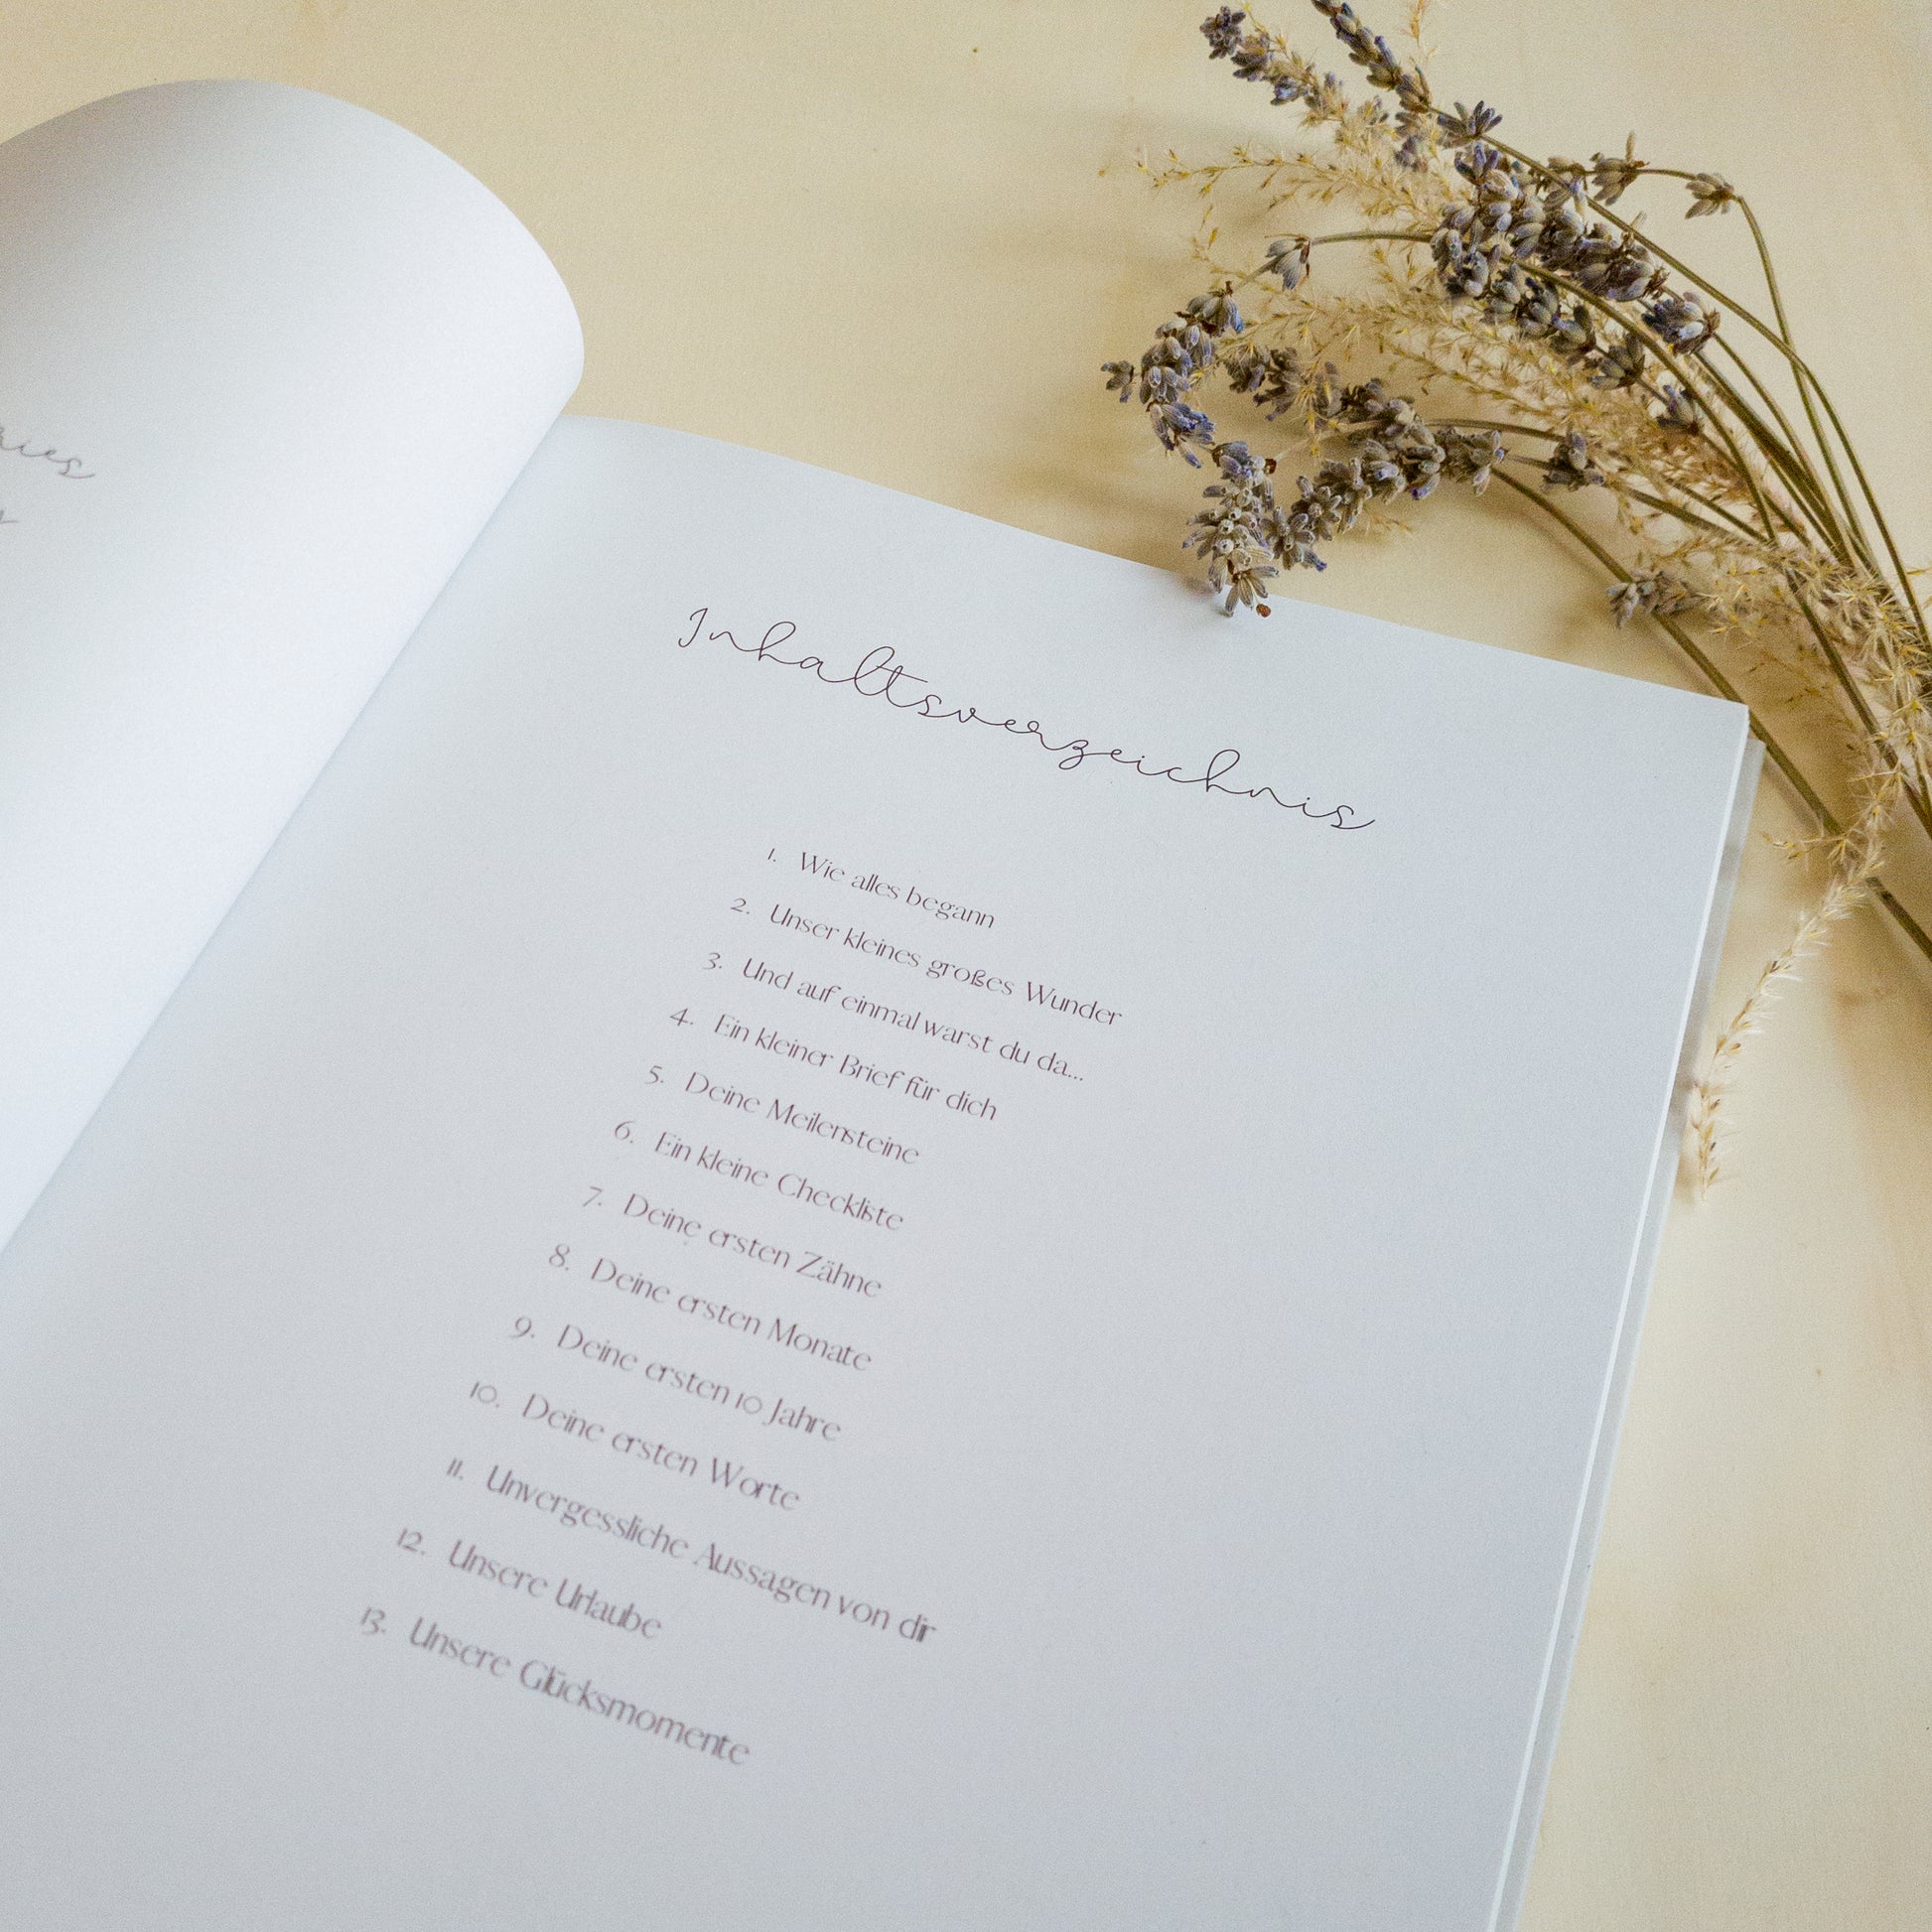 Inhaltsverzeichnis
1. Wie alles begann
2. Unser kleines großes Wunder
3. Und auf einmal warst du da...
4. Ein kleiner Brief für dich
5. Deine Meilensteine
6. Ein kleine Checkliste
7. Deine ersten Zähne
8. Deine ersten Monate
9. Deine ersten 10 Jahre
10. Deine ersten Worte
11. Unvergessliche Aussagen von dir
12. Unsere Urlaube
13. Unsere Glücksmomente